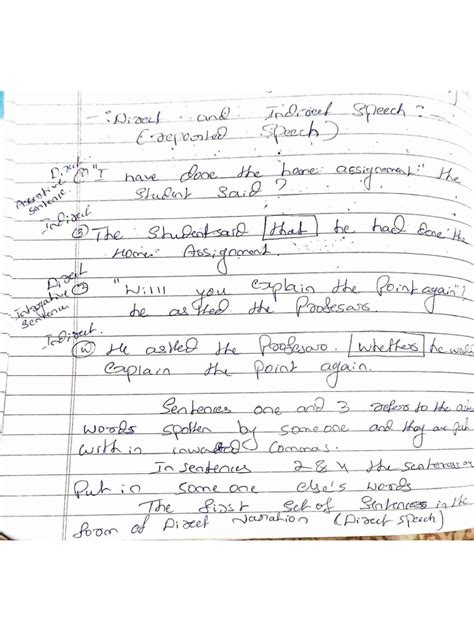 -: Direct and Indirect Speech :-
(reported Speech)
Direct
Assertive Sentence
① "I have done the home assignment" the
Student Said ?
Indirect
② The Student said that he had done the
Home Assignment.
Direct
Interative Sentence
③ "Willl you explain the Point again"?
he asked the Professors.
Indirect.
④ He asked the Professors. Whethers he would
Explain the point again.
Sentences one and 3 refers to the
words spoken by someone and they are put
with in inverted Commas.
In sentences 2 & 4 the sentences are
Put in some one else's words
The first set of Sentences in the
form of Direct Narration (Direct speech)